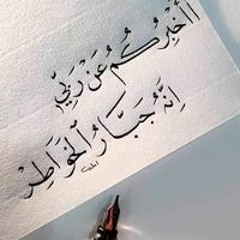 أأخبركم عن ربي
إنه جبار الخواطر